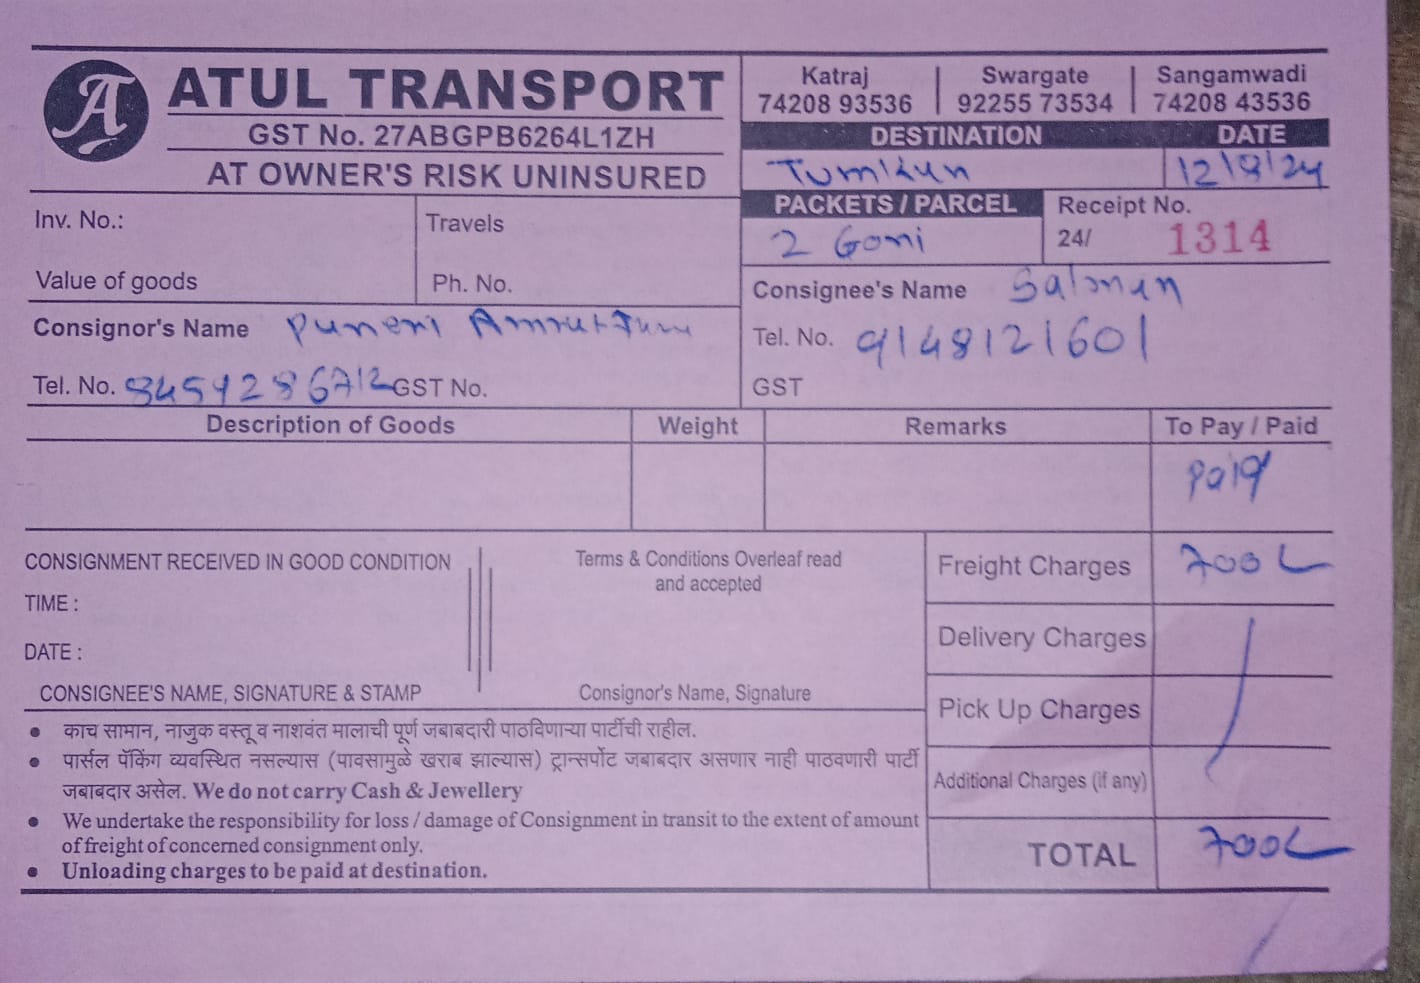 ATUL TRANSPORT
GST No. 27ABGPB6264L1ZH
AT OWNER'S RISK UNINSURED
Katraj | Swargate | Sangamwadi
74208 93536 | 92255 73534 | 74208 43536
DESTINATION DATE
Tumkun 12/8/24
PACKETS / PARCEL Receipt No.
2 Goni 24/ 1314
Inv. No.: Travels
Value of goods Ph. No.
Consignee's Name Salman
Consignor's Name Puneri
Tel. No. 9148121601
Tel. No. GST No.
GST
Description of Goods Weight Remarks To Pay / Paid
Paid
CONSIGNMENT RECEIVED IN GOOD CONDITION
TIME :
DATE :
CONSIGNEE'S NAME, SIGNATURE & STAMP
Terms & Conditions Overleaf read
and accepted
Consignor's Name, Signature
Freight Charges 700
Delivery Charges
Pick Up Charges
Additional Charges (if any)
TOTAL 700
• काच सामान, नाजुक वस्तू व नाशवंत मालाची पूर्ण जबाबदारी पाठविणाऱ्या पार्टीची राहील.
• पार्सल पॅकिंग व्यवस्थित नसल्यास (पावसामुळे खराब झाल्यास) ट्रान्सपोर्ट जबाबदार असणार नाही पाठवणारी पार्टी
जबाबदार असेल. We do not carry Cash & Jewellery
• We undertake the responsibility for loss / damage of Consignment in transit to the extent of amount
of freight of concerned consignment only.
• Unloading charges to be paid at destination.